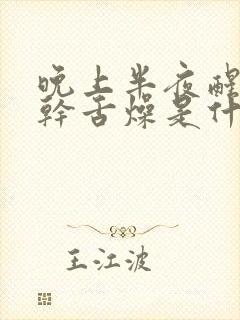 晚上半夜醒
幹舌燥是什
王江波